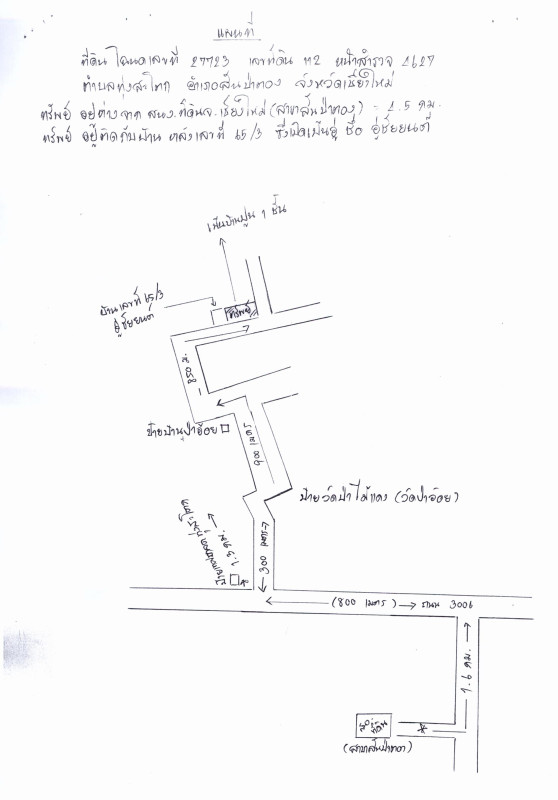 แผนที่
ที่ดิน โฉนดเลขที่ 27723 เลขที่ดิน 112 หน้าสำรวจ 2627
ตำบลทุ่งสะโตก อำเภอสันป่าตอง จังหวัดเชียงใหม่
ทรัพย์ อยู่ห่างจาก สนง.ที่ดินจ.เชียงใหม่ (สาขาสันป่าตอง) - 2.5 กม.
ทรัพย์ อยู่ติดกับบ้าน หลังเลขที่ 65/3 ซึ่งเปิดเป็นอู่ ชื่อ อู่ชัยยนต์
เป็นบ้านปูน 1 ชั้น
บ้านเลขที่ 65/3
อู่ชัยยนต์
ทรัพย์
850 ม.
ป้ายบ้านป่าอ้อย
เมตร
ป้ายวัดป่าไม้แดง (วัดป่าอ้อย)
300 เมตร
1.3 กม.
(800 เมตร) ถนน 3006
1.6 กม.
(สาขาสันป่าตอง)